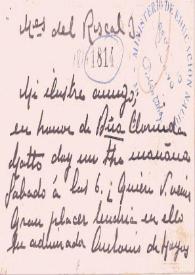 Ms del Riscal 7.
1814
MINISTERIO DE EDUCACION
Mi ilustre amigo;
en honor de Pina Clorinda
Matto doy un The mañana
sábado á las 6. ¿Quiere V. venir
Gran placer tendria en ello
su admirador Antonio de Hoyos